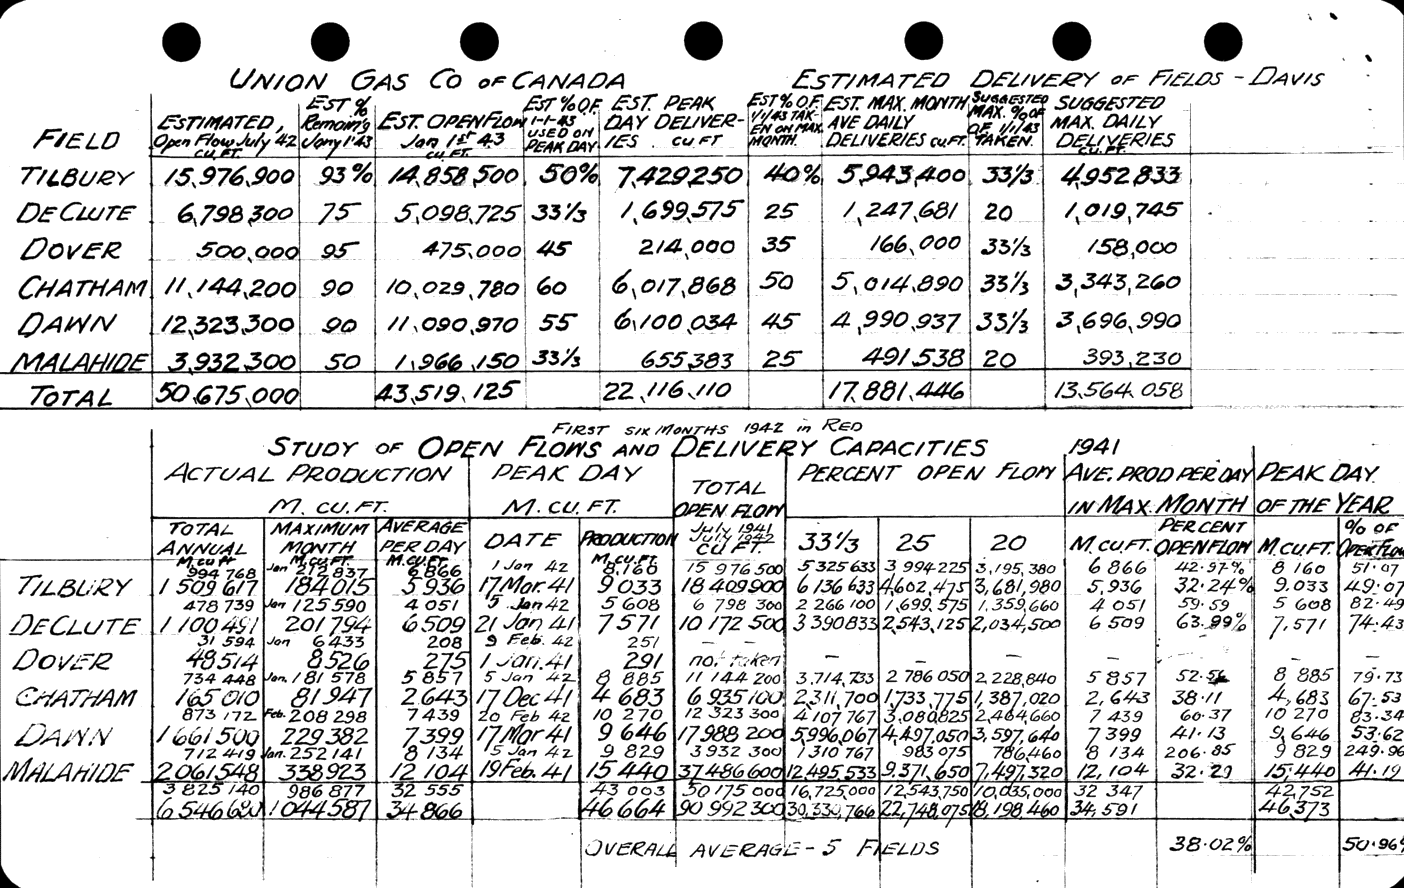 UNION GAS CO OF CANADA ESTIMATED DELIVERY OF FIELDS - DAVIS
FIELD ESTIMATED, Open Flow July 42 CU. FT. EST % Remain'g Jany 1'43 EST. OPENFLOW Jan 1st 43 CU. FT. EST % OF 1-1-43 USED ON PEAK DAY EST. PEAK DAY DELIVER-IES CU FT EST % OF 1/1/43 TAK-EN ON MAX. MONTH. EST. MAX. MONTH AVE DAILY DELIVERIES CU FT. SUGGESTED MAX. % OF OF 1/1/43 TAKEN. SUGGESTED MAX. DAILY DELIVERIES CU. FT.
TILBURY 15,976,900 93% 14,858,500 50% 7,429,250 40% 5,943,400 33⅓ 4,952,833
DECLUTE 6,798,300 75 5,098,725 33⅓ 1,699,575 25 1,247,681 20 1,019,745
DOVER 500,000 95 475,000 45 214,000 35 166,000 33⅓ 158,000
CHATHAM 11,144,200 90 10,029,780 60 6,017,868 50 5,014,890 33⅓ 3,343,260
DAWN 12,323,300 90 11,090,970 55 6,100,034 45 4,990,937 33⅓ 3,696,990
MALAHIDE 3,932,300 50 1,966,150 33⅓ 655,383 25 491,538 20 393,230
TOTAL 50,675,000 43,519,125 22,116,110 17,881,446 13,564,058
FIRST SIX MONTHS 1942 in RED
STUDY OF OPEN FLOWS AND DELIVERY CAPACITIES 1941
ACTUAL PRODUCTION PEAK DAY TOTAL OPEN FLOW PERCENT OPEN FLOW AVE. PROD PER DAY PEAK DAY
M. CU. FT. M. CU. FT. IN MAX. MONTH OF THE YEAR
TOTAL ANNUAL M cu ft MAXIMUM MONTH M. CU. FT. AVERAGE PER DAY M. CU. FT. DATE PRODUCTION M. CU FT July 1941 July 1942 CU FT. 33⅓ 25 20 M. CU FT. PERCENT OPEN FLOW M. CU FT. % OF OPEN FLOW
994 768 Jan 6 866 1 Jan 42 8 160 15 976 500 5 325 633 3 994 225 3,195,380 6 866 42.97% 8 160 51.07
TILBURY 1 509 617 184 015 5 936 17 Mar. 41 9 033 18 409 900 6 136 633 4,602,475 3,681,980 5,936 32.24% 9 033 49.07
478 739 Jan 125 590 4 051 5 Jan 42 5 608 6 798 300 2 266 100 1,699,575 1,359,660 4 051 59.59 5 608 82.49
DECLUTE 1 100 491 201 794 6 509 21 Jan 41 7 571 10 172 500 3 390 833 2,543,125 2,034,500 6 509 63.99% 7,571 74.43
31 594 Jan 6 433 208 9 Feb. 42 251 - -
DOVER 48 514 8 526 275 1 Jan. 41 291 not taken - - - - - - -
734 448 Jan. 181 578 5 857 5 Jan 42 8 885 11 144 200 3,714,733 2 786 050 2,228,840 5 857 8 885 79.73
CHATHAM 165 010 81 947 2 643 17 Dec 41 4 683 6 935 100 2,311,700 1,733,775 1,387,020 2,643 38.11 4,683 67.53
873 172 Feb. 208 298 7 439 20 Feb 42 10 270 12 323 300 4 107 767 3,080,825 2,464,660 7 439 60.37 10 270 83.34
DAWN 1 661 500 229 382 7 399 17 Mar 41 9 646 17 988 200 5,996,067 4,497,050 3,597,640 7 399 41.13 9,646 53.62
712 419 Jan. 252 141 8 134 5 Jan 42 9 829 3 932 300 1 310 767 983 075 786,460 8 134 206.85 9 829 249.96
MALAHIDE 2 061 548 338 923 12 104 19 Feb. 41 15 440 37 486 600 12,495,533 9,371,650 7,497,320 12,104 32.29 15,440 41.19
3 825 140 986 877 32 555 43 003 50 175 000 16,725,000 12,543,750 10,035,000 32 347 42,752
6 546 680 1 044 587 34 866 46 664 90 992 300 30,330,766 22,748,075 18,198,460 34,591 46,373
OVERALL AVERAGE - 5 FIELDS 38.02% 50.96%